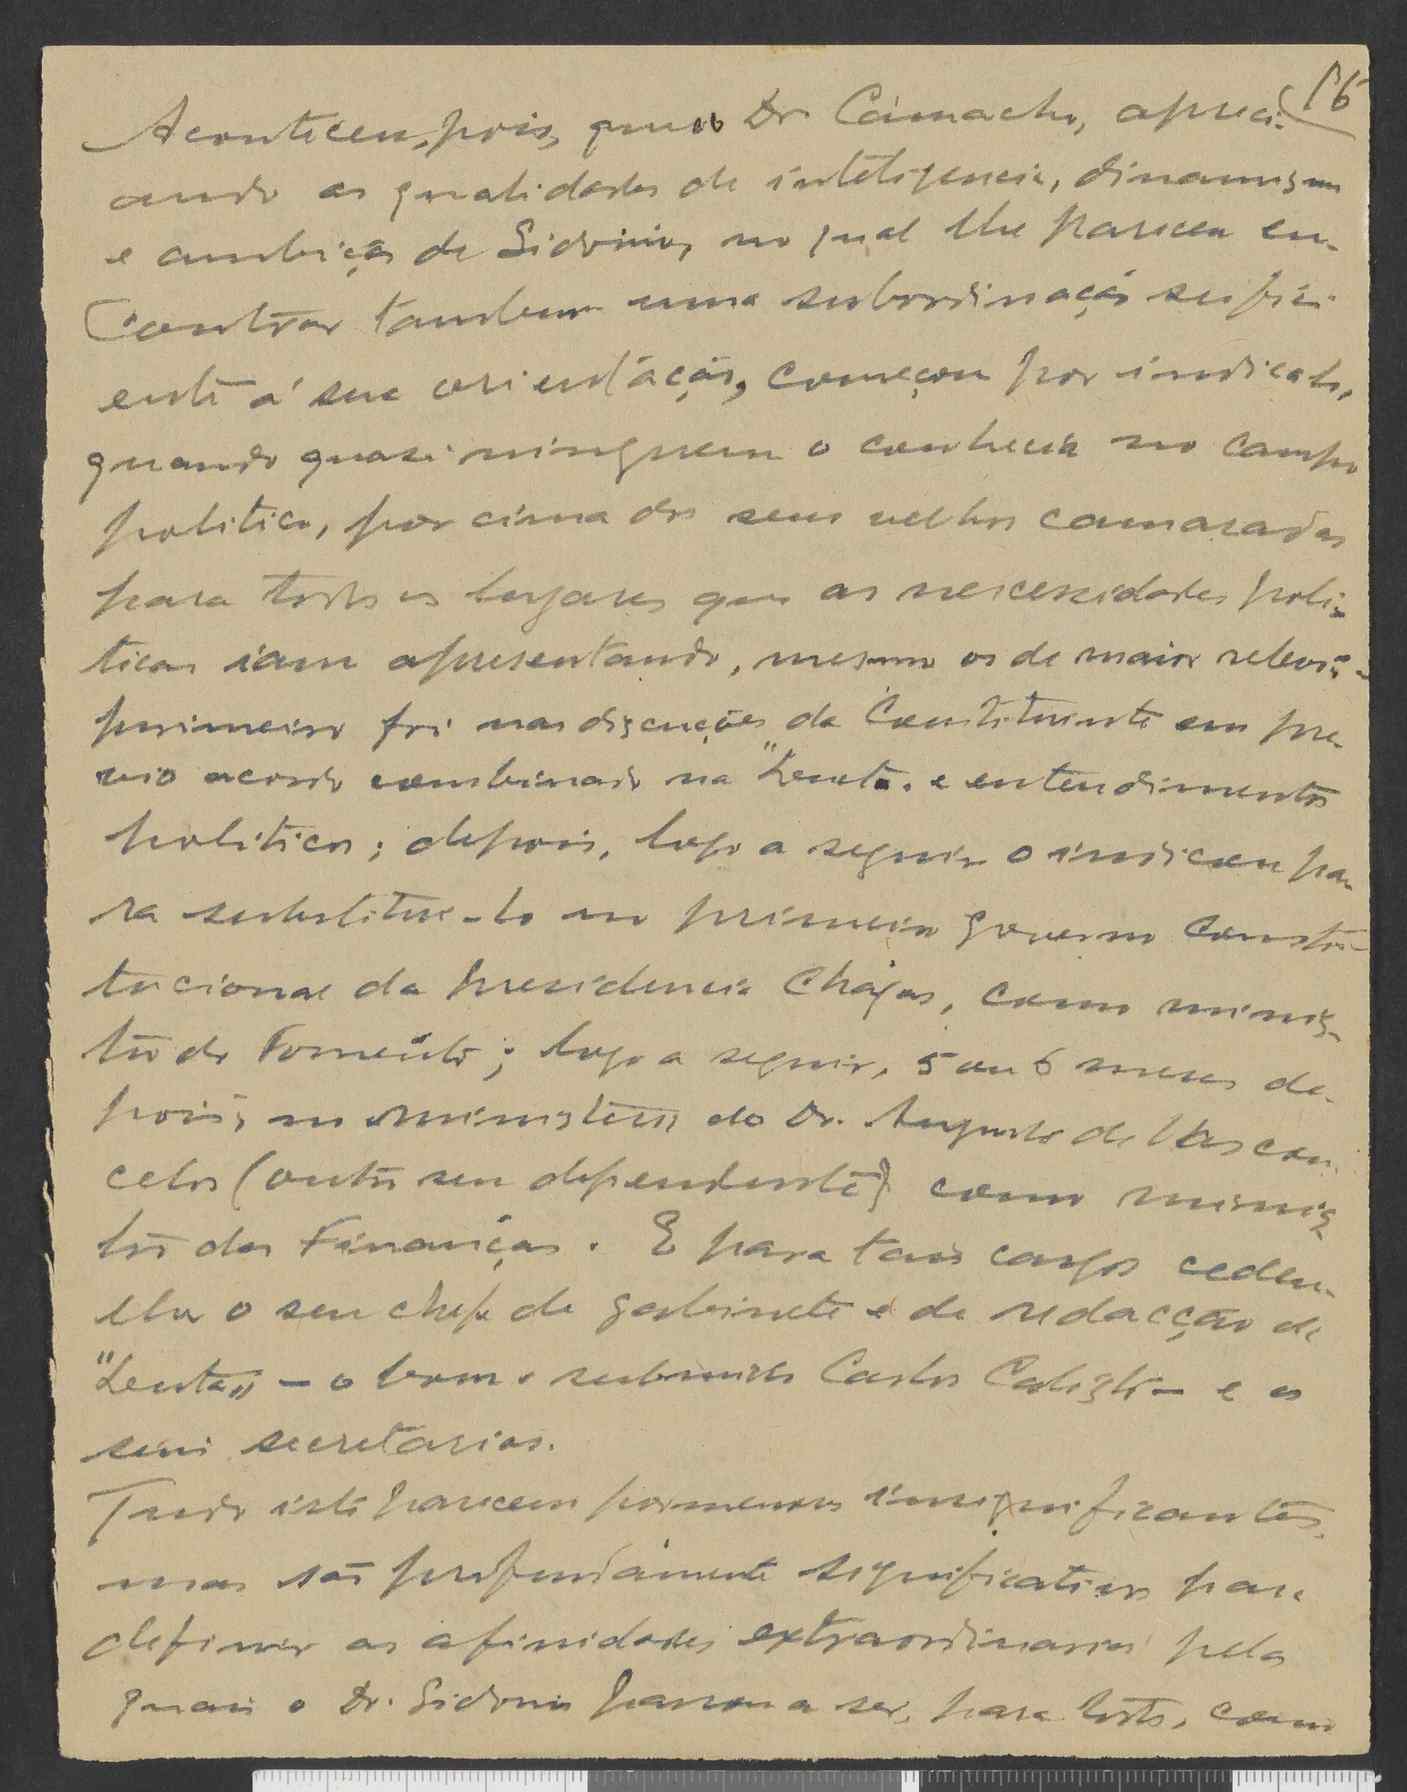 16
Aconteceu, pois, que o Dr. Camacho, apreci-
ando as qualidades de inteligencia, dinamismo
e ambição de Sidonio, no qual lhe pareceu en-
contrar tambem uma subordinação sufici-
ente á sua orientação, começou por indical-o,
quando quasi ninguem o conhecia no campo
politico, por cima dos seus velhos camaradas
para todos os lugares que as necessidades poli-
ticas iam apresentando, mesmo os de maior relevo:
primeiro foi nas discuções da Constituinte em pre-
vio acordo combinado na "Lucta" e entendimentos
politicos; depois, logo a seguir o indicou pa-
ra substitui-lo no primeiro governo consti-
tucional da presidencia Chagas, como minis-
tro do Fomento; logo a seguir, 5 ou 6 meses de-
pois, no ministerio do Dr. Augusto de Vascon-
celos (outro seu dependente) como minis-
tro das Finanças. E para tais cargos cedeu-
lhe o seu chefe de gabinete e de redacção da
"Lucta" - o bom e submisso Carlos Calixto - e os
seus secretarios.
Tudo isto parecem pormenores insignificantes,
mas são profundamente significativos para
definir as afinidades extraordinarias pelas
quais o Dr. Sidonio passou a ser, para todos, como